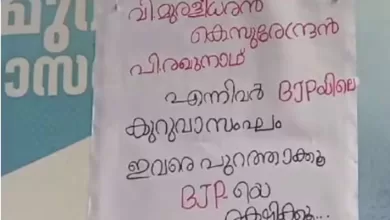 വി.മുരളീധരൻ
കെ സുരേന്ദ്രൻ
പി രഘുനാഥ്
എന്നിവർ BJPയിലെ
കുറുവാസംഘം
ഇവരെ പുറത്താക്കൂ
BJP-യെ
രക്ഷിക്കൂ...